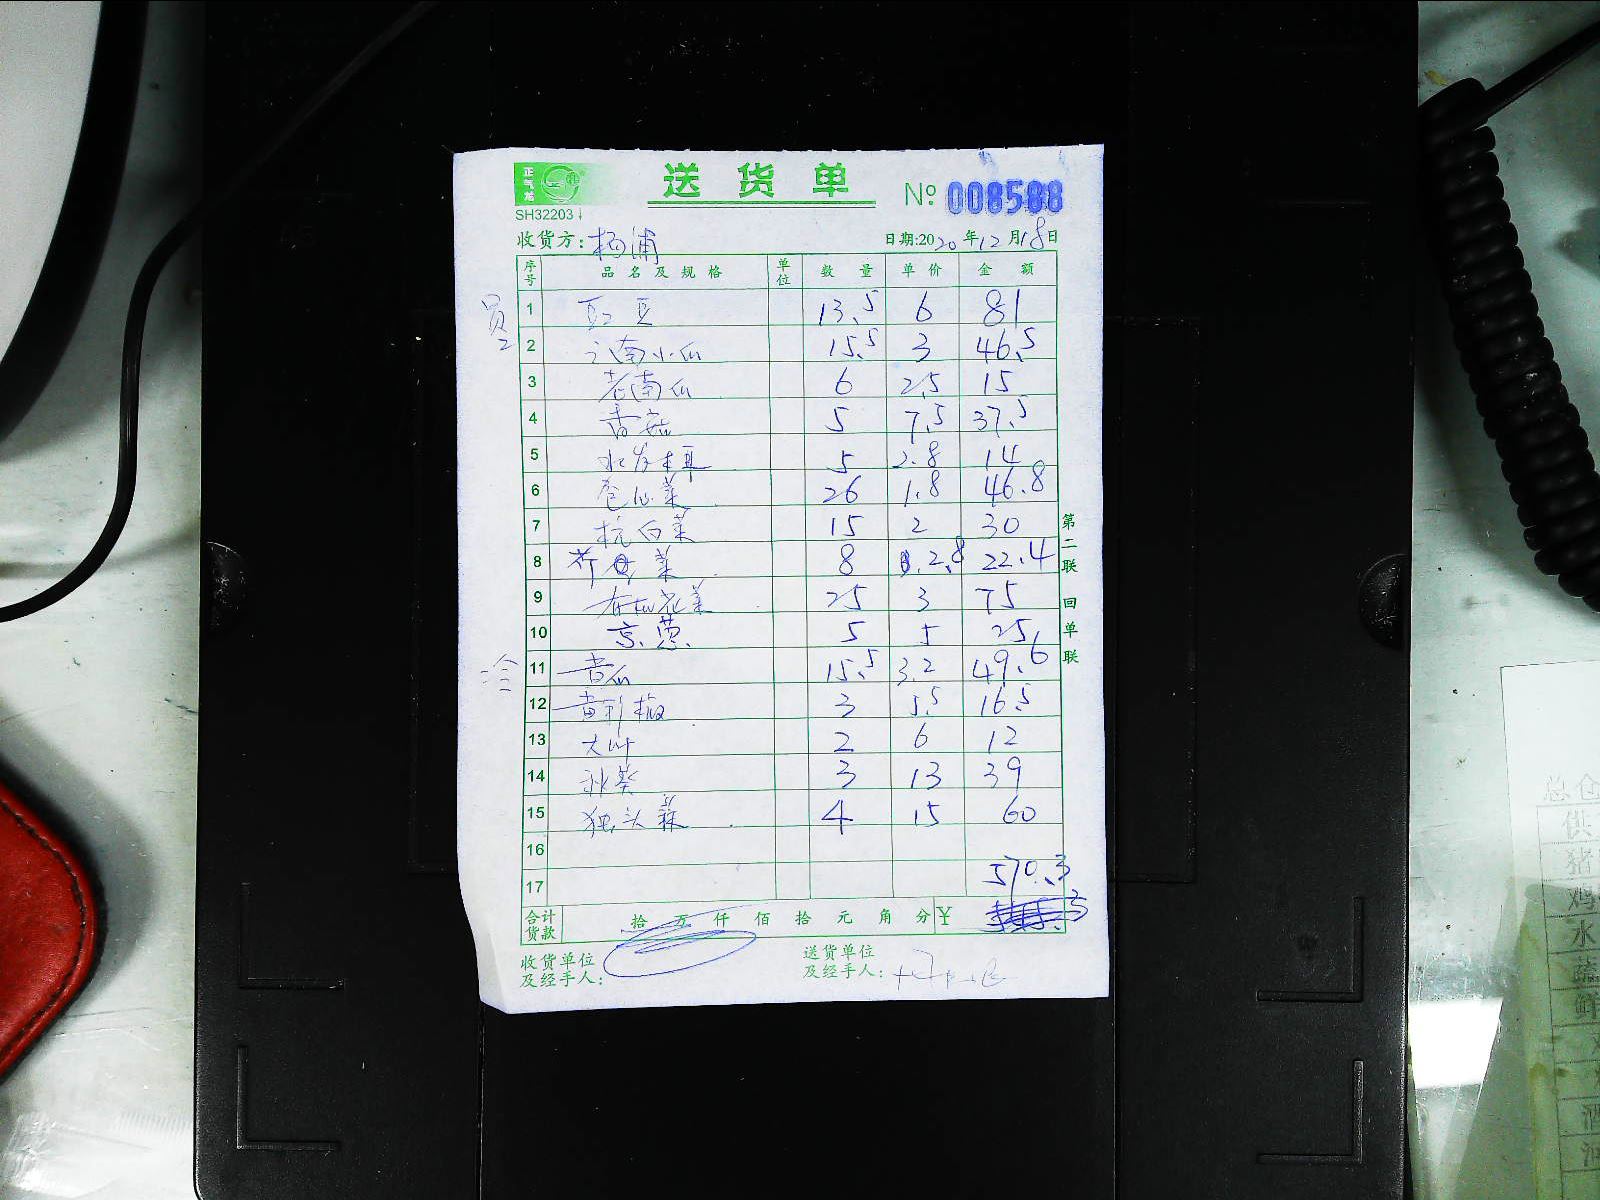 正气龙
送货单
№ 008588
SH32203
收货方: 杨浦 日期:2020年12月18日
序号 品名及规格 单位 数量 单价 金额
员2
1 豇豆 13.5 6 81
2 南小瓜 15.5 3 46.5
3 老南瓜 6 2.5 15
4 香菇 5 7.5 37.5
5 水发木耳 5 2.8 14
6 卷心菜 26 1.8 46.8
7 杭白菜 15 2 30
8 菜 8 2.8 22.4
9 有机花菜 25 3 75
10 京葱 5 5 25
11 黄瓜 15.5 3.2 49.6
12 黄彩椒 3 5.5 16.5
13 大叶 2 6 12
14 秋葵 3 13 39
15 独头蒜 4 15 60
16
17 570.3
合计货款 拾 万 仟 佰 拾 元 角 分 ¥
收货单位及经手人:
送货单位及经手人:
第二联 回单联
总仓
供
猪
鸡
水
蔬
鲜